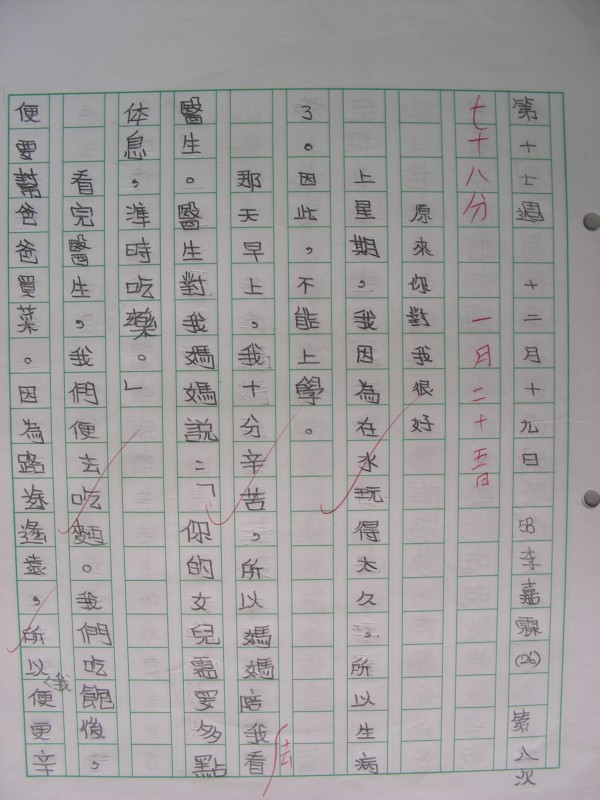 第十七週 十二月十九日 5B李嘉霖(26) 第八次
七十八分 一月二十五日
原來你對我很好
上星期,我因為在水玩得太久,所以生病
了。因此,不能上學。
那天早上,我十分辛苦,所以媽媽陪我看
去
醫生。醫生對我媽媽說:「你的女兒需要多點
休息,準時吃藥。」
看完醫生,我們便去吃麵。我們吃飽後,
便要幫爸爸買菜。因為路遙遠,所以便更辛
我